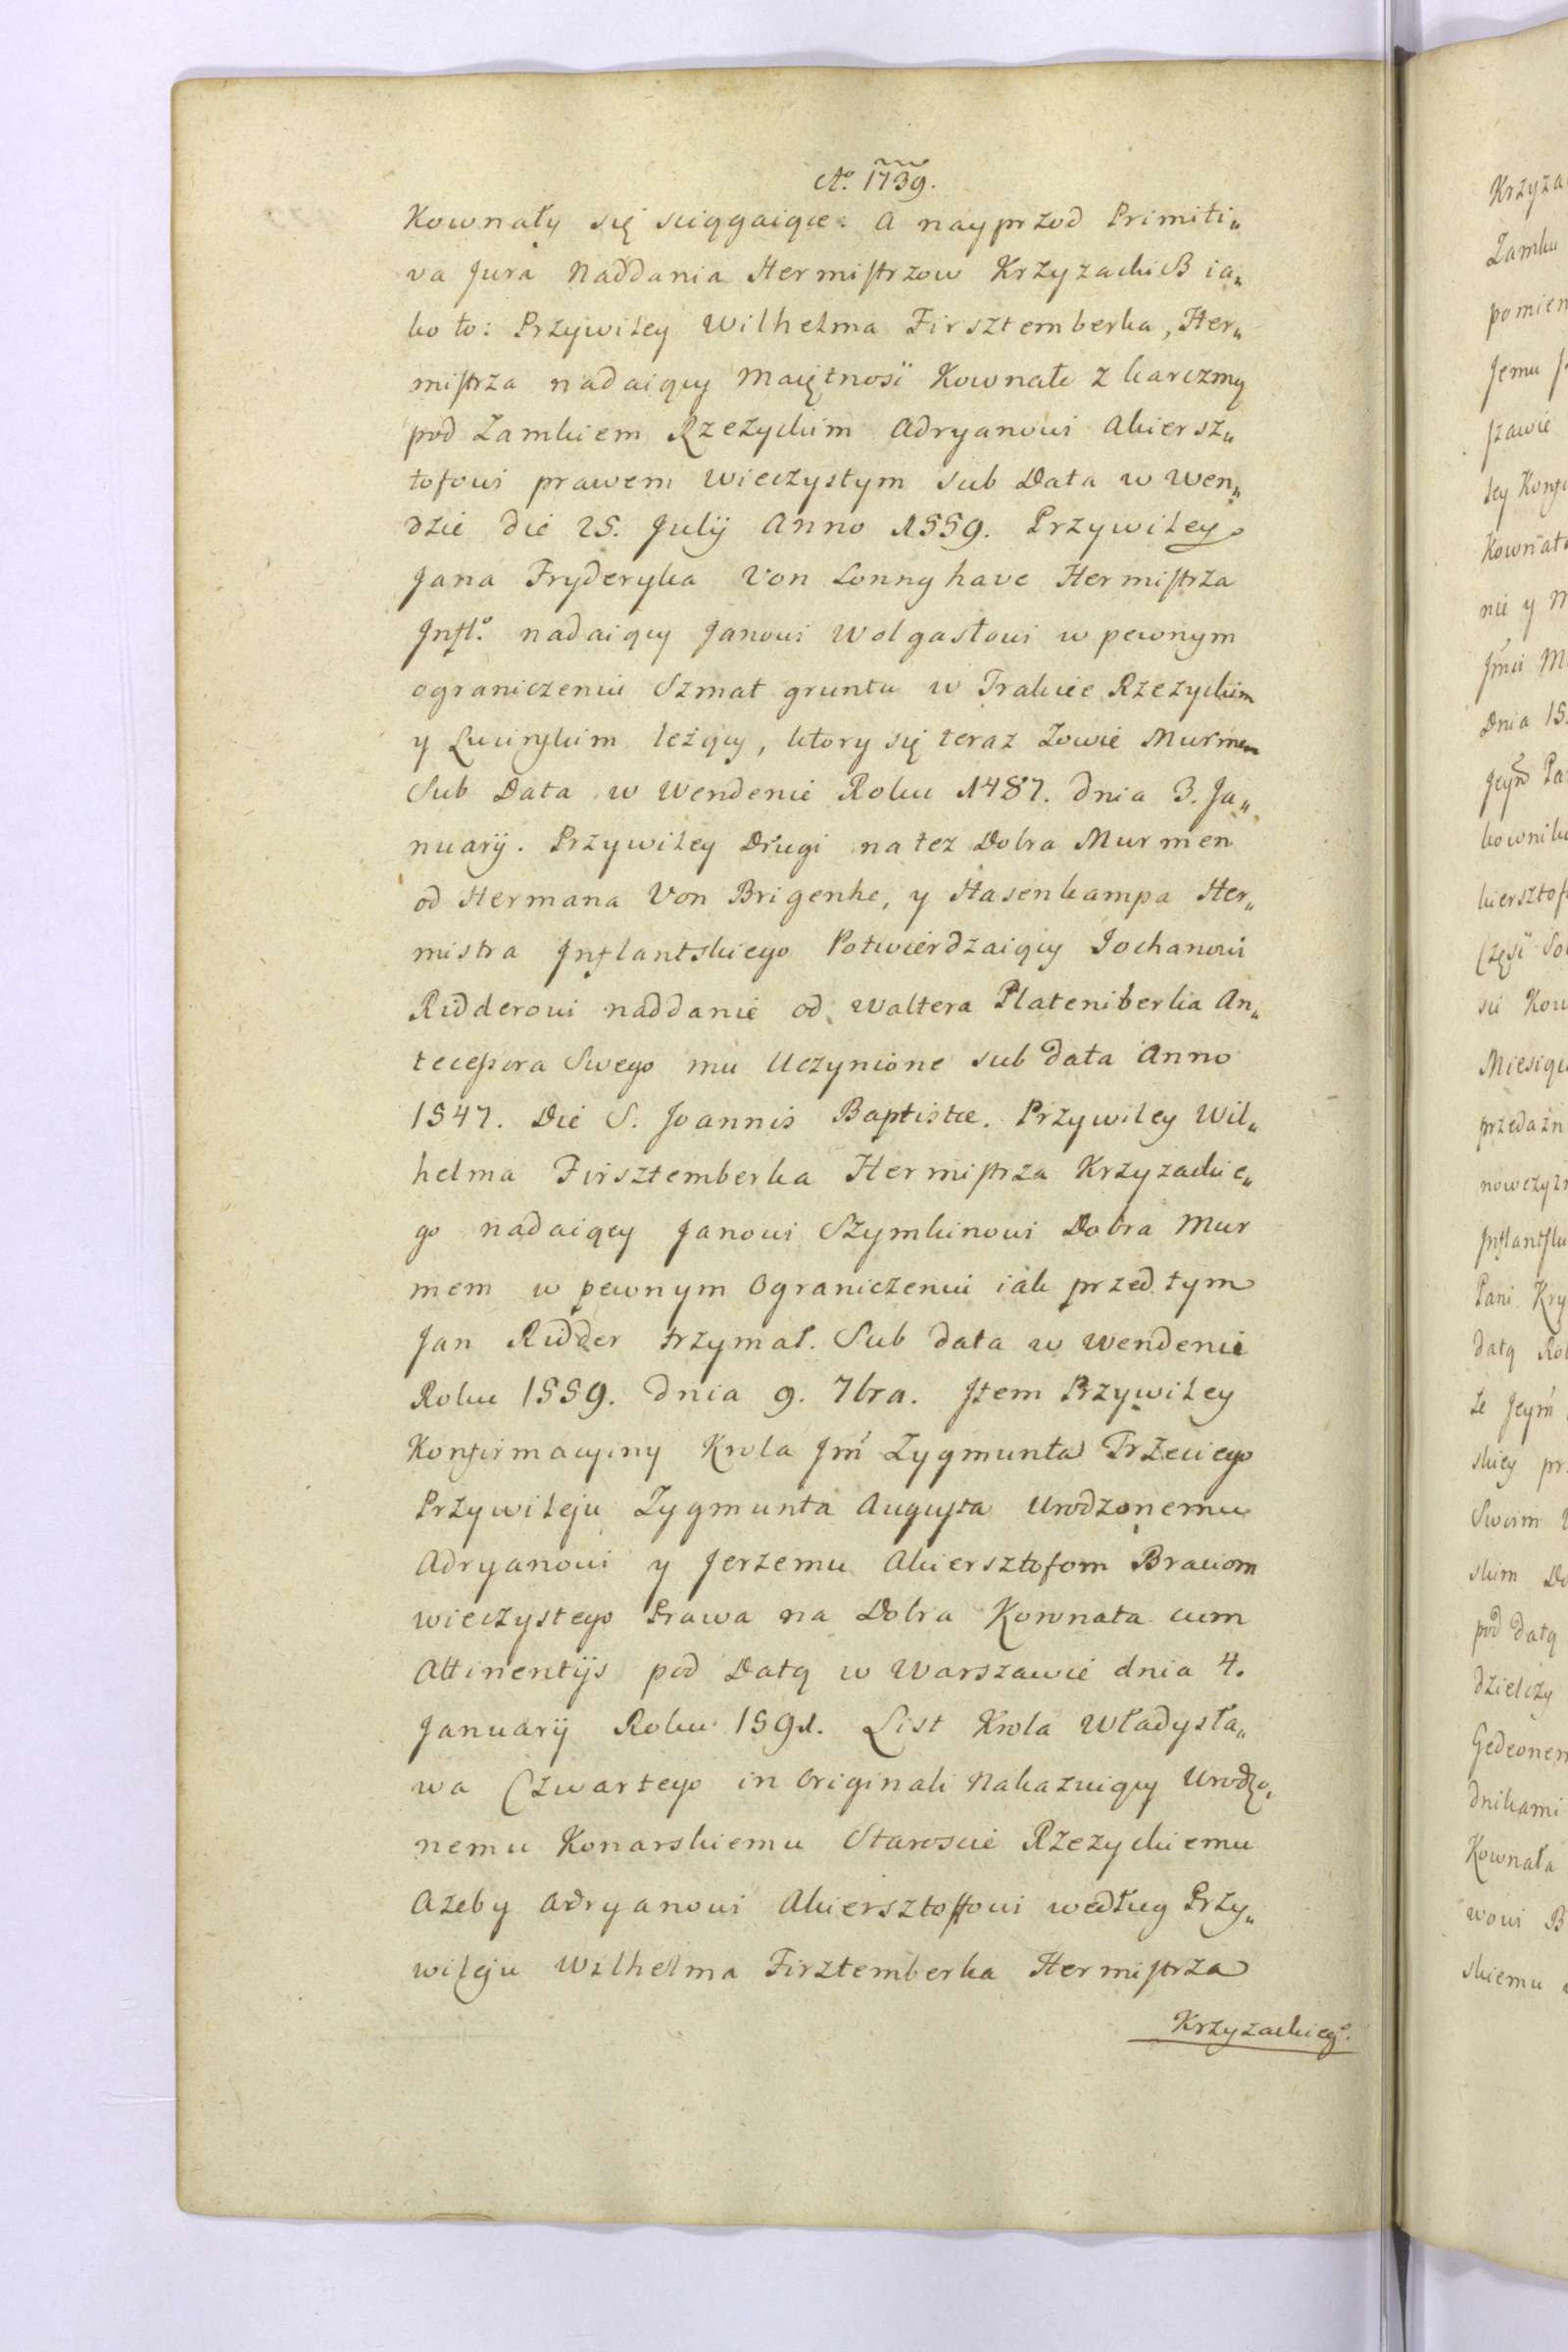 Ao. 1739.
Kownaty się sciągaiące. A nayprzod Primiti„
va Jura Naddania Hermistrzow Krzyzackich ia„
ko to: Przywiley Wilhelma Firsztemberka, Her„
mistrza nadaiący Maiętnosć Kownate z karczmą
pod Zamkiem Rzezyckim Adryanowi Akiersz„
tofowi prawem wieczystym sub Data w Wen„
dzie die 25. Julij Anno 1559. Przywiley
Jana Fryderyka Von Lonnghave Hermistrza
Infl.o nadaiący Janowi Wolgastowi w pewnym
ograniczeniu Szmat gruntu w Trakcie Rzezyckim
y Lucinskim leżący, ktory się teraz Zowie Murmen
Sub Data w Wendenie Roku 1487. dnia 3. Ja„
nuarij. Przywiley Drugi na tez Dobra Murmen
od Hermana Von Brigenke, y Hasenkampa Her„
mistra Inflantskiego Potwierdzaiący Jochanowi
Ridderowi naddanie od Waltera Platemberka An„
tecessora Swego mu Uczynione sub data Anno
1547. Die S. Joannis Baptistæ. Przywiley Wil„
helma Firsztemberka Hermistrza Krzyzackie„
go nadaiący Janowi Szymkinowi Dobra Mur
mem w pewnym Ograniczeniu iak przed tym
Jan Ridder trzymał. Sub data w Wendenie
Roku 1559. dnia 9. 7bra. Item Przywiley
Konfirmacyiny Krola Jm̃ Zygmunta Trzeciego
Przywileju Zygmunta Augusta Urodzonemu
Adryanowi y Jerzemu Akiersztofom Braciom
wieczystego Prawa na Dobra Kownata cum
Attinentijs pod Datą w Warszawie dnia 4.
Januarij Roku 1591. List Krola Władysła„
wa Czwartego in Originali Nakazuiący Urodzo„
nemu Konarskiemu Staroscie Rzezyckiemu
Azeby Adryanowi Akiersztoffowi według Przy„
wileju Wilhelma Firztemberka Hermistrza
Krzyzackiego.
Krzyza
Zamku
pomien
Jemu
szawie
ley Konfi
Kownat
nie y M
Dnia 15.
kownik
kiersztof
Częsć
Kow
Miesiąc
przedazn
nowczyzn
Pani Kry
datą Rok
skiey pr
Swoim
skim Do
pod datą
dzielczy
Gedeonem
dnikami
Kownata
wowi B
skiemu